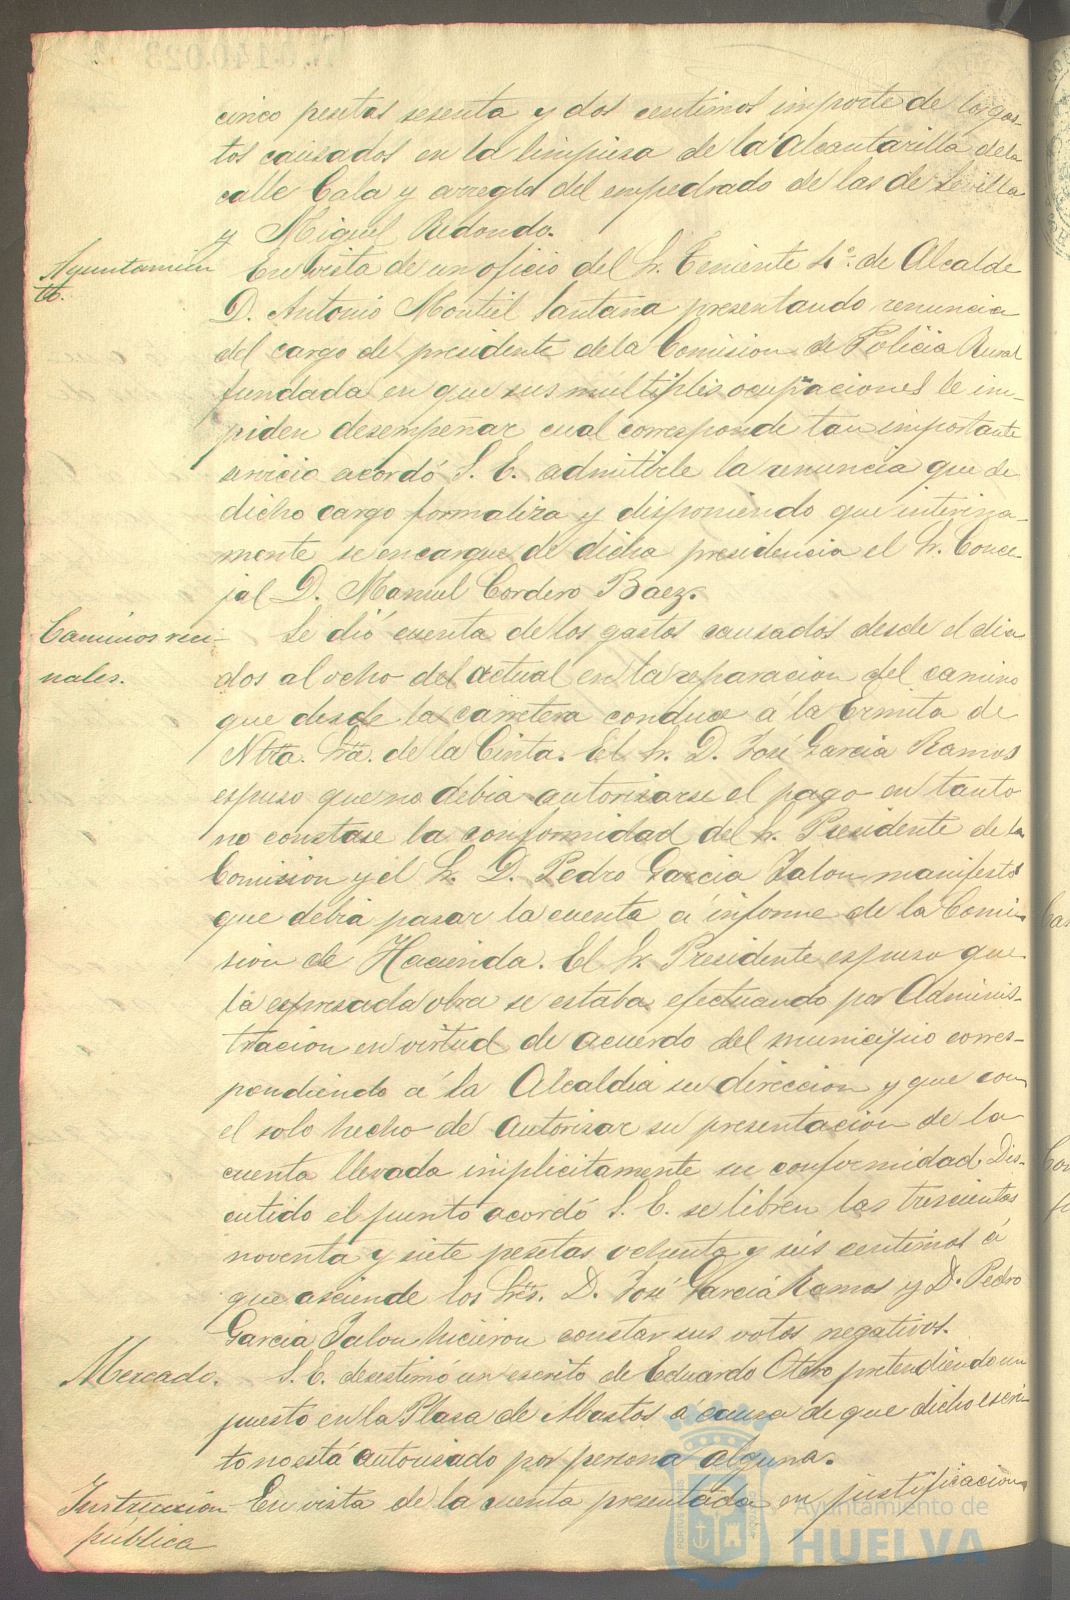 cinco pesetas sesenta y dos centimos importe de los gas-
tos causados en la limpiesa de la Alcantarilla dela
calle Cala y arreglo del empedrado de las de Sevilla
y Miguel Redondo.
Ayuntamien
to.
En vista de un oficio del Sr. Teniente 4º de Alcalde
D. Antonio Montiel Santana presentando renuncia
del cargo de presidente dela Comision de Policia Rural
fundada en que sus multiples ocupaciones le im-
piden desempeñar cual corresponde tan importante
servicio acordó S. E. admitirle la renuncia que de
dicho cargo formaliza y disponiendo que interina-
mente se encargue de dicha presidencia el Sr. Conce-
jal D. Manuel Cordero Baez.
Caminos veci-
nales.
Se dió cuenta de los gastos causados desde el dia
dos al ocho del actual en la reparacion del camino
que desde la carretera conduce á la Ermita de
Ntra. Sra. de la Cinta. El Sr. D. José Garcia Ramos
espuso que no debia autorisarse el pago en tanto
no constase la conformidad del Sr. Presidente de la
Comision y el Sr. D. Pedro Garcia Jalon manifestó
que debia pasar la cuenta á informe de la Comi-
sion de Hacienda. El Sr. Presidente espuso que
la espresada obra se estaba efectuando por Adminis-
tracion en virtud de acuerdo del municipio corres-
pondiendo á la Alcaldia su direccion y que con
el solo hecho de autorisar su presentacion de la
cuenta llevada implicitamente su conformidad. Dis-
cutido el punto acordó S. E. se libren las trescientas
noventa y siete pesetas ochenta y seis centimos á
que asciende los Sres. D. José Garcia Ramos y D. Pedro
Garcia Jalon hicieron constar sus votos negativos.
Mercado.
S. E. desestimó un escrito de Eduardo Otero pretendiendo un
puesto en la Plasa de Abastos á causa de que dicho escri-
to no está autorisado por persona alguna.
Instruccion
publica
En vista de la cuenta presentada en justificacion
Ayuntamiento de
HUELVA